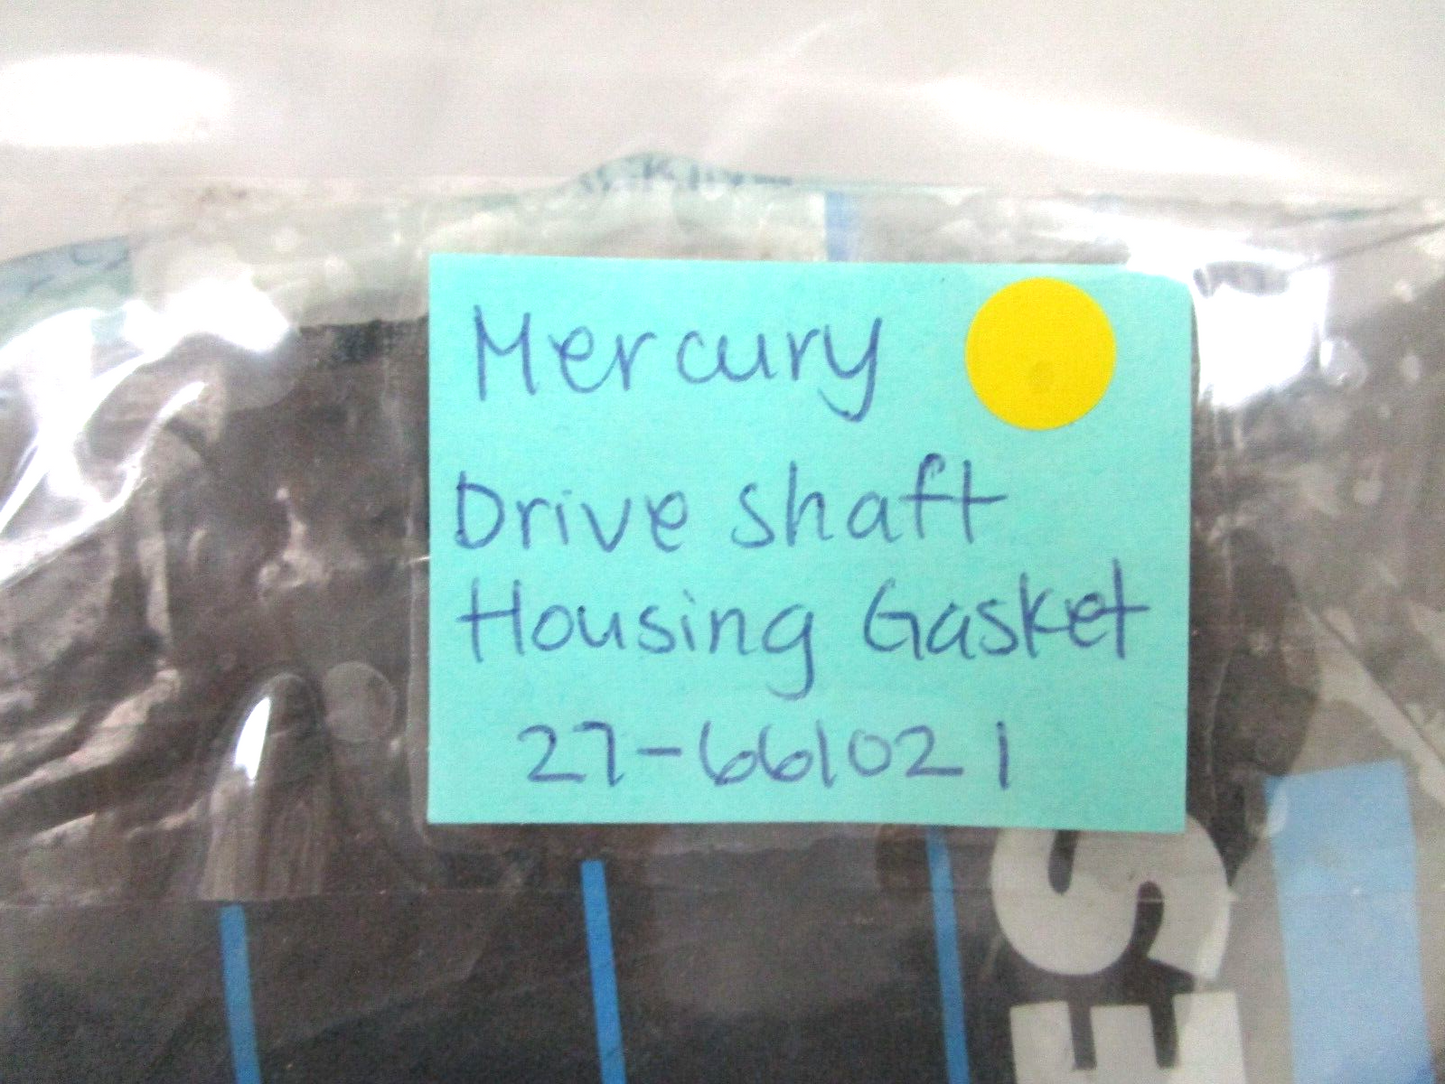 Mercury
Drive shaft
Housing Gasket
27-661021
ES